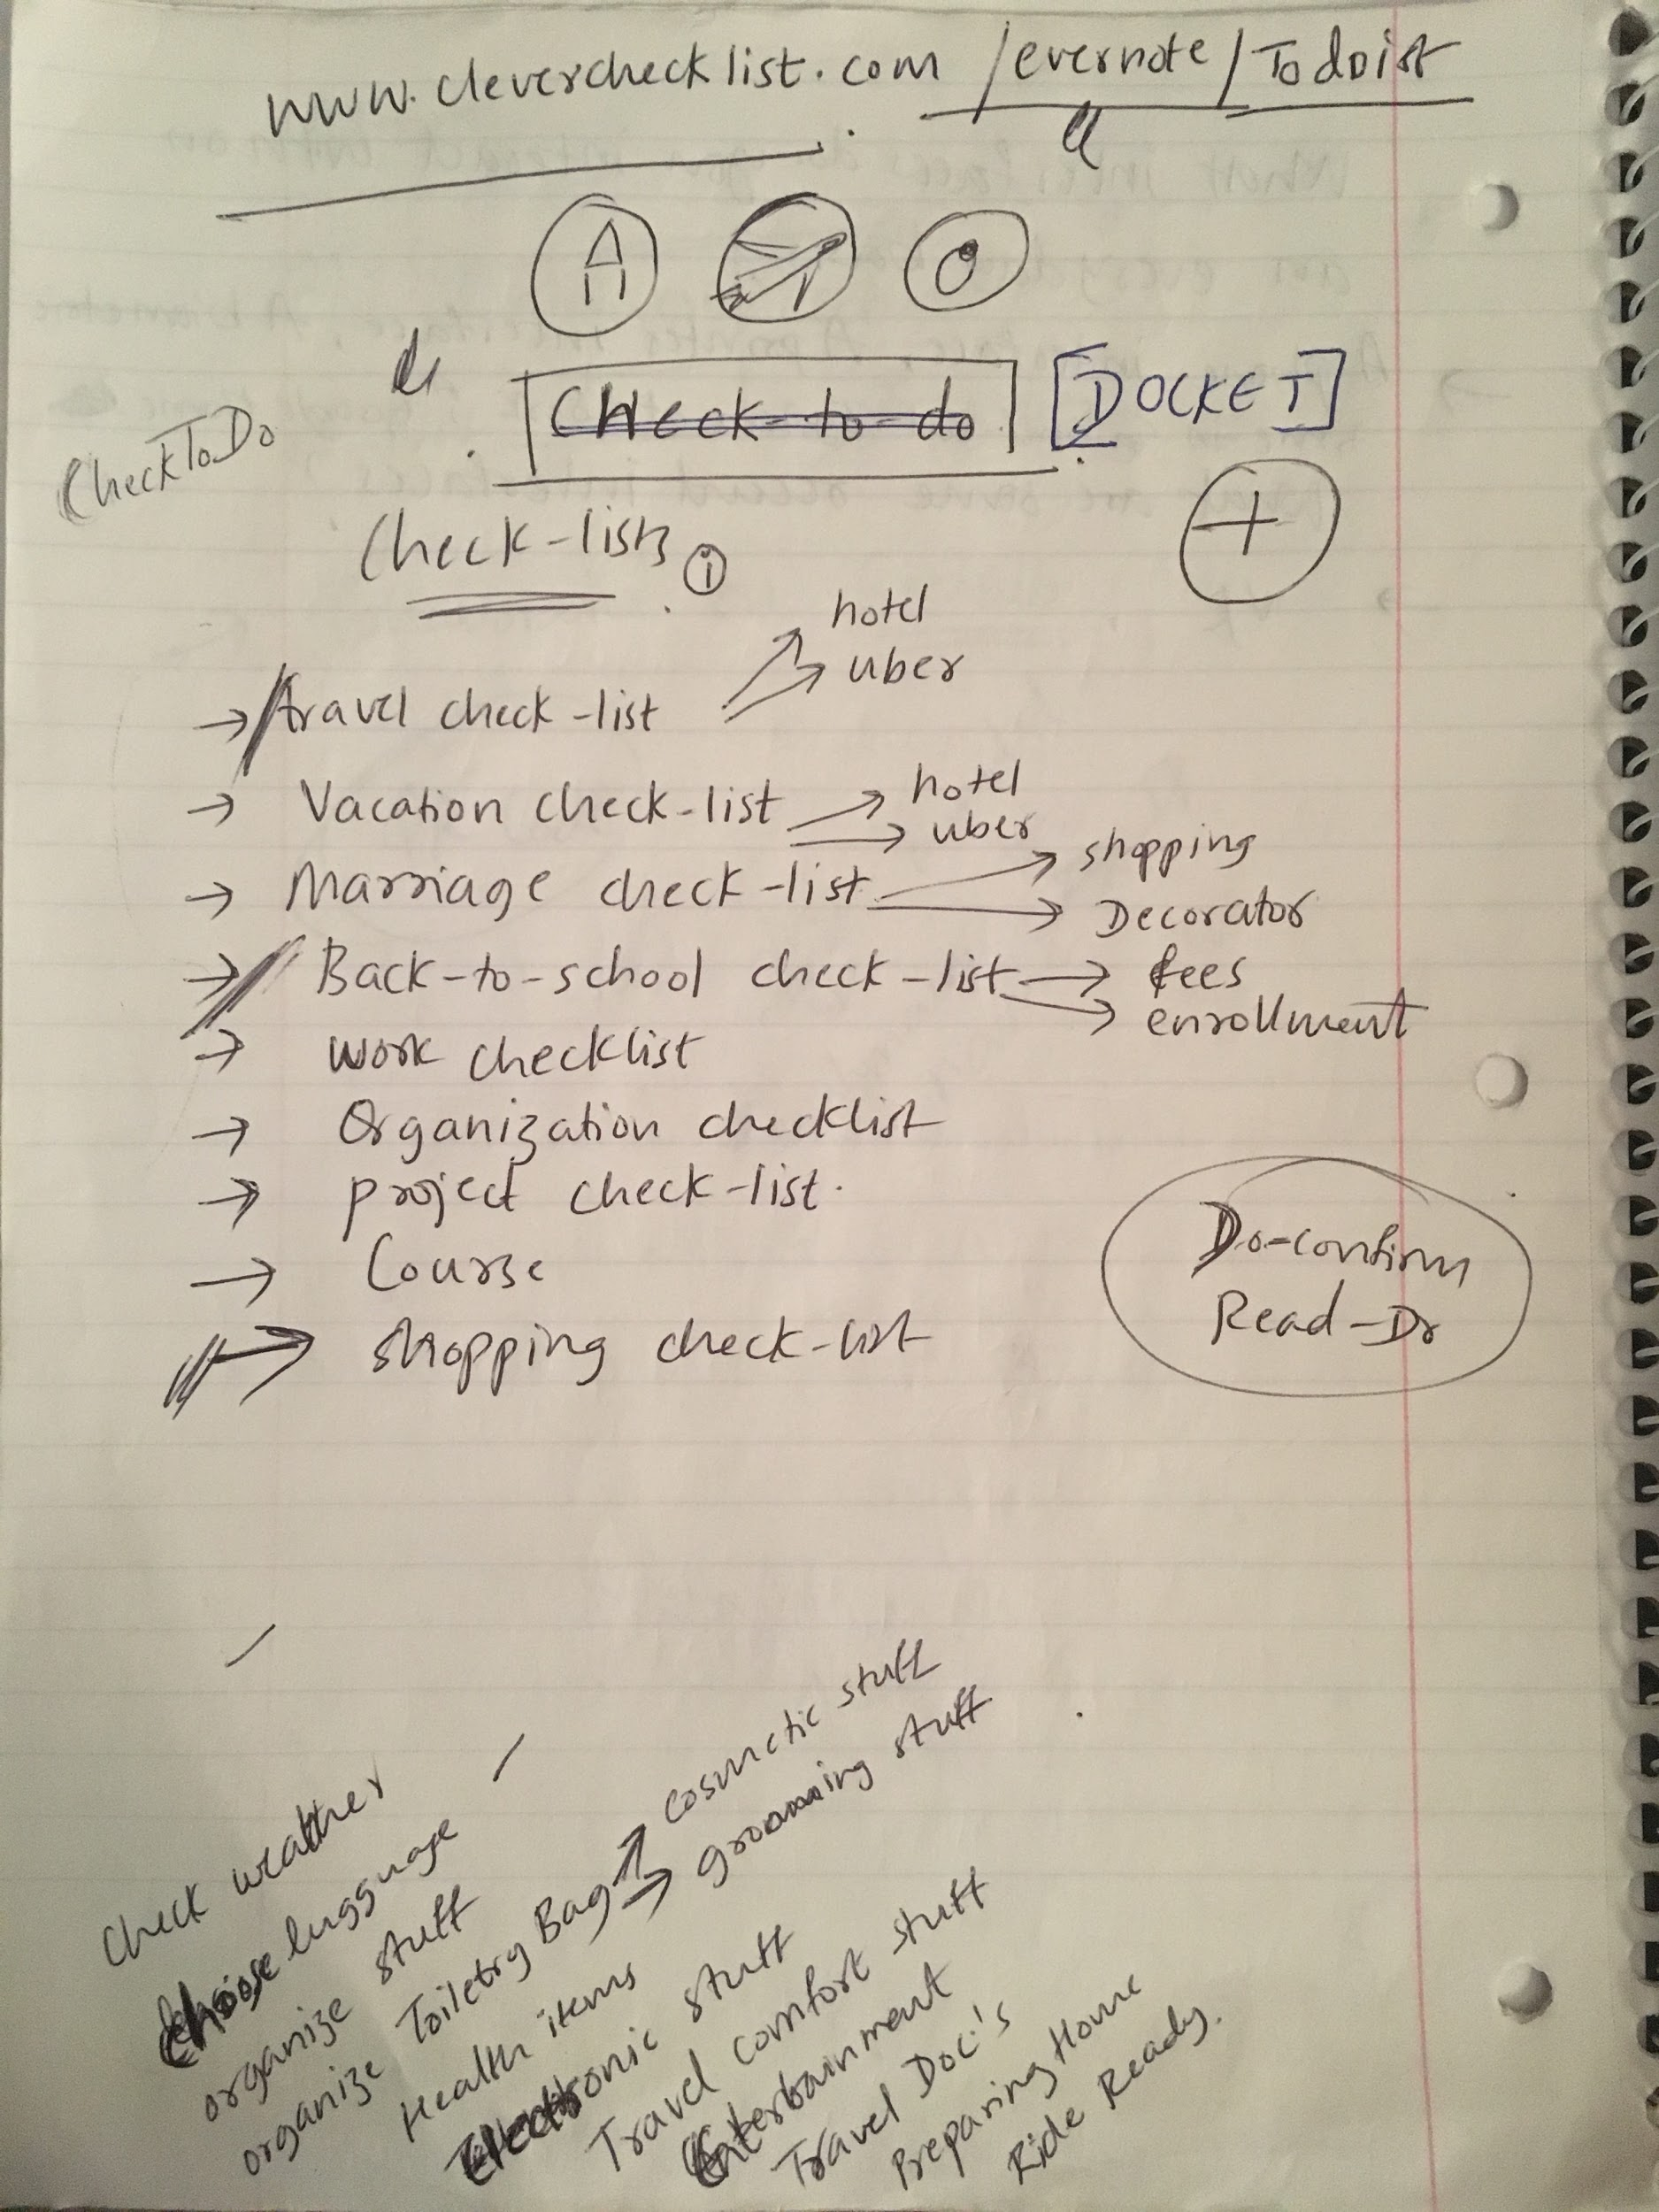 www.cleverchecklist.com /evernote/Todoist
Check-to-do [DOCKET]
CheckToDo
Check-lists i
+
hotel
uber
→ travel check-list
→ Vacation check-list → hotel
→ uber
→ Marriage check-list → shopping
→ Decorator
→ Back-to-school check-list → fees
→ enrollment
→ work checklist
→ Organization checklist
→ project check-list.
→ Course
→ shopping check-list
Do-confirm
Read-Do
Check weather
Choose lugguage
organize stuff
organize Toiletry Bag → Cosmetic stuff
→ grooming stuff
Health items
Electronic stuff
Travel comfort stuff
Enterbainment
Travel Doc's
Preparing Home
Ride Ready.